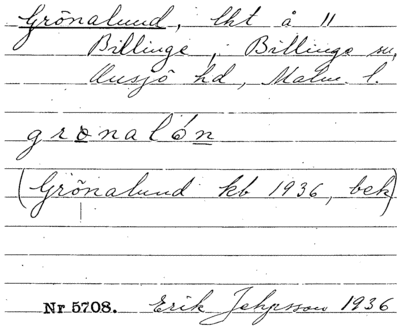 Grönalund, lht å 11
Billinge, Billinge sn,
Onsjö hd, Malm. l.
grønalón
(Grönalund kb 1936, bek)
Nr 5708. Erik Jeppsson 1936